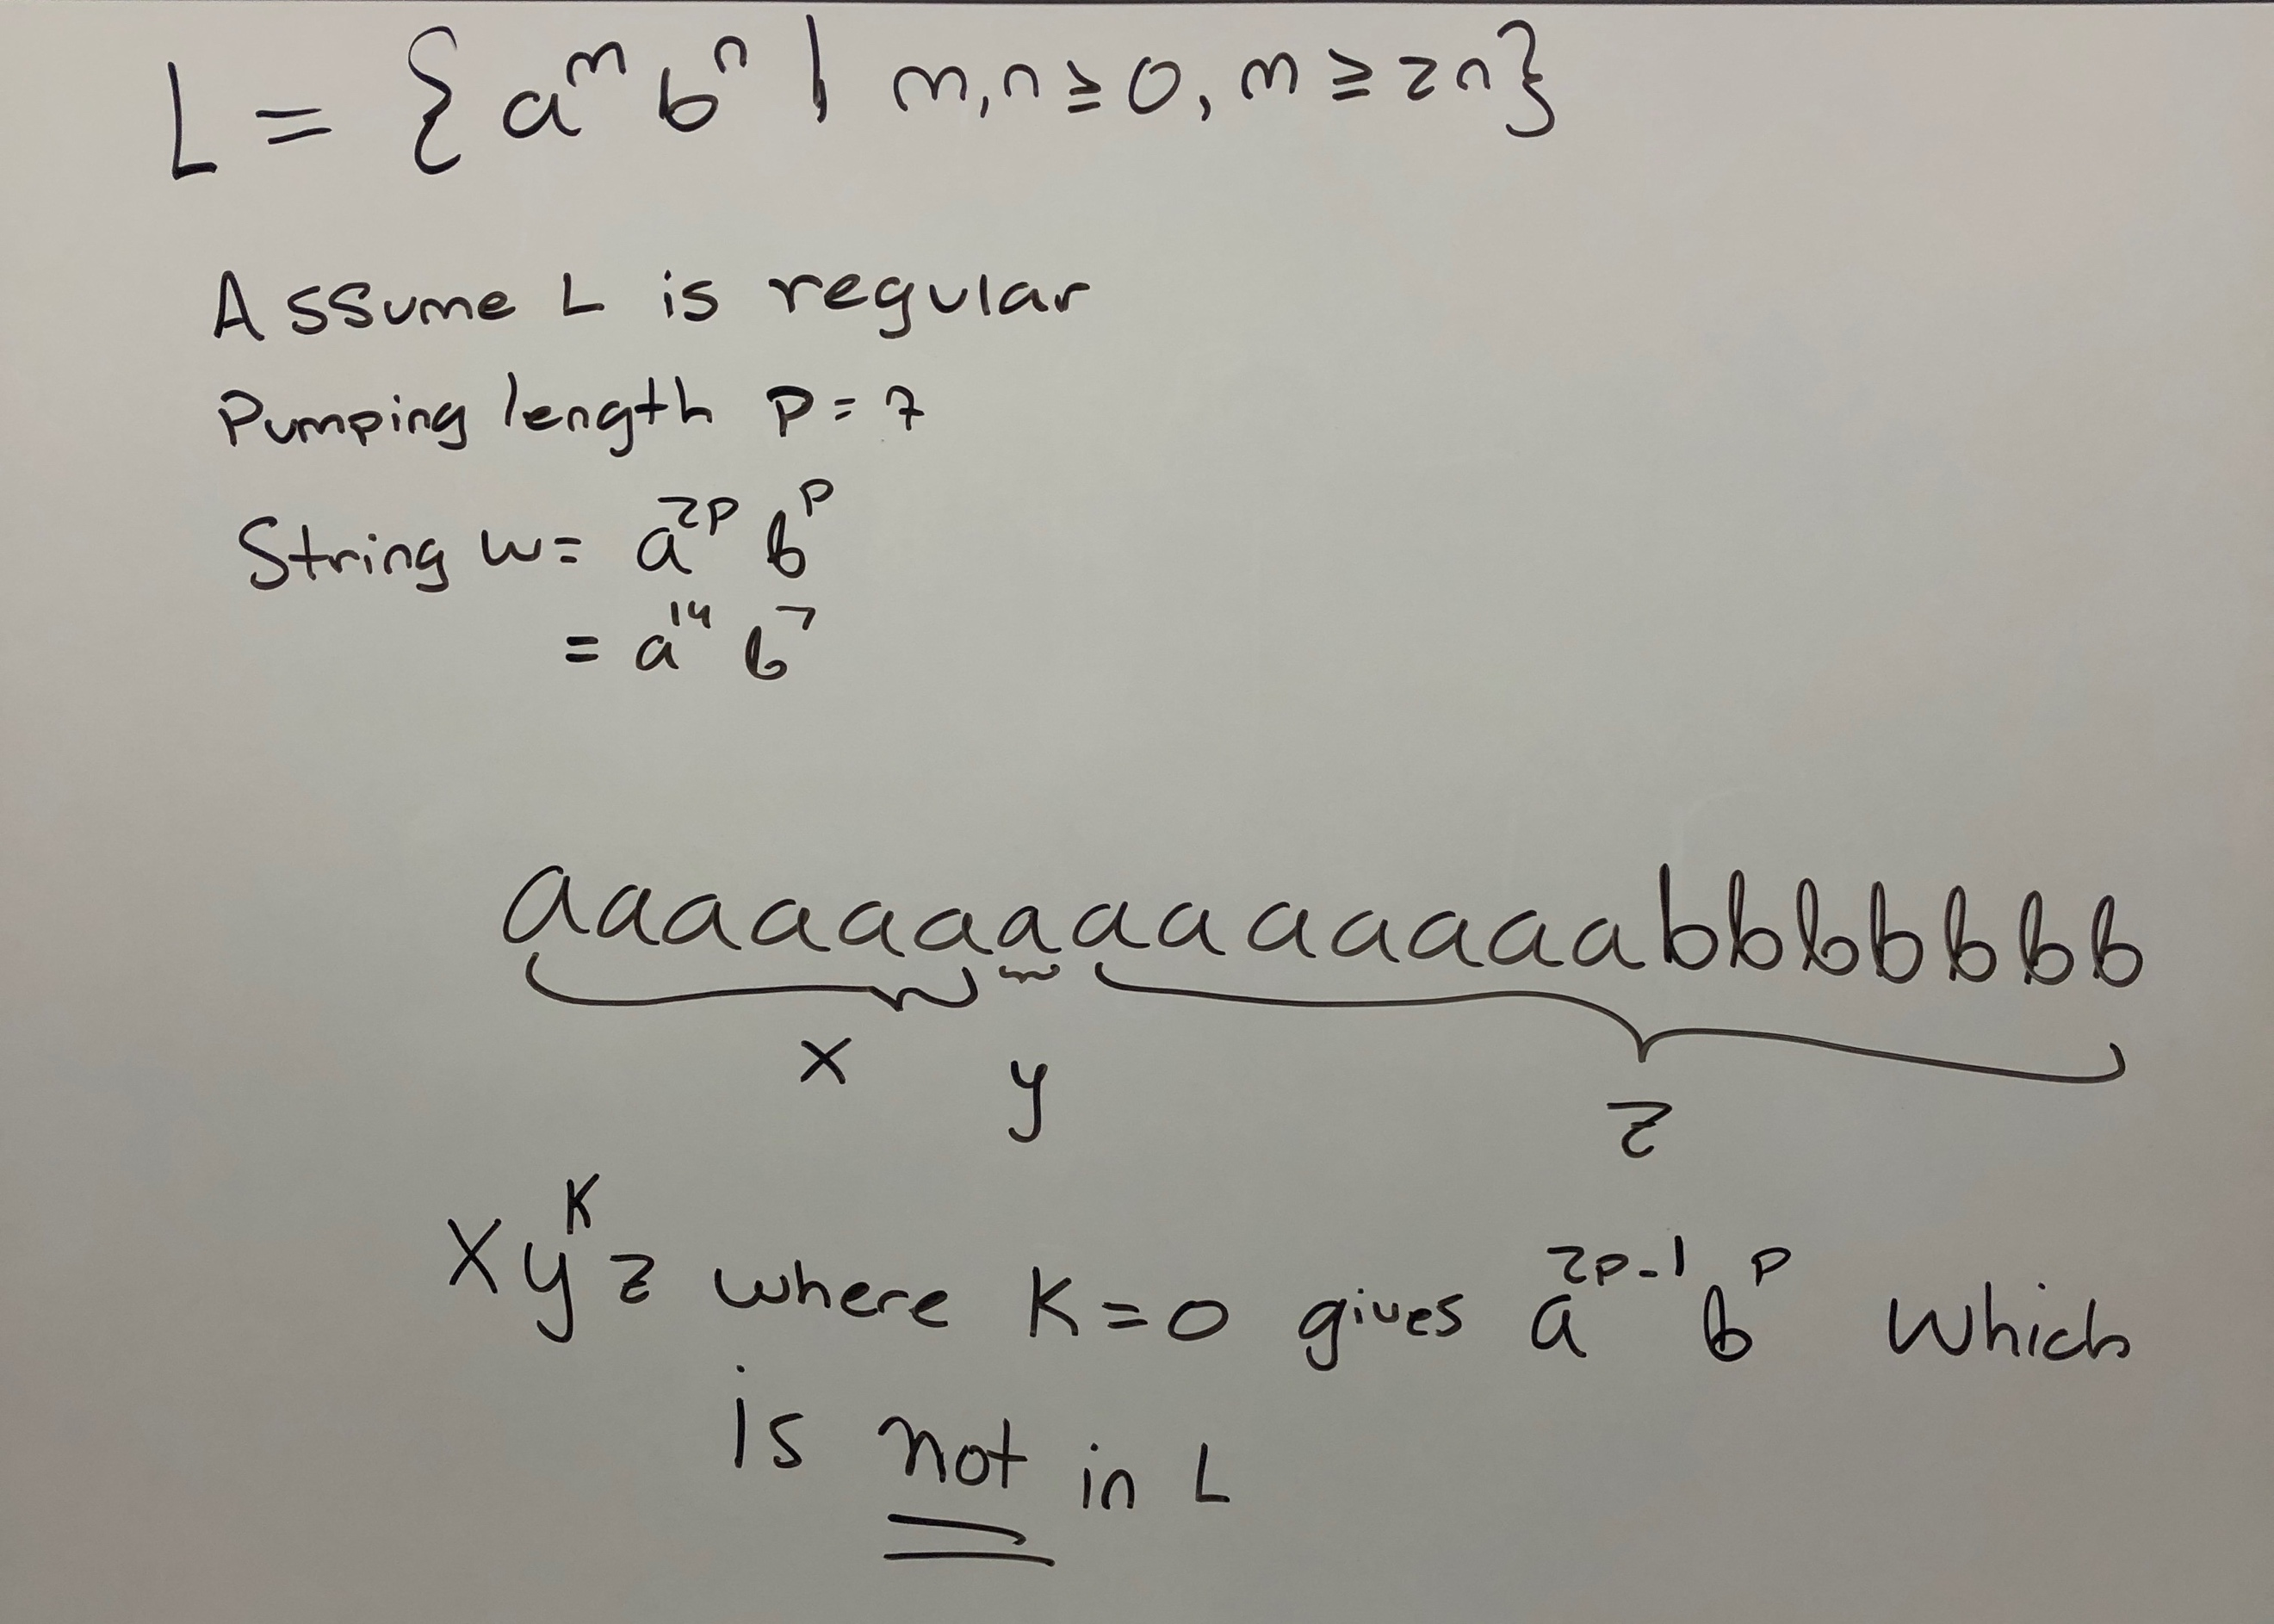 L = { aᵐ bⁿ | m,n ≥ 0, m ≥ 2n}
Assume L is regular
Pumping length P = 7
String w = a²ᵖ bᵖ
= a¹⁴ b⁷
aaaaaaaaaaaaaabbbbbbb
x y z
xyᴷz where K=0 gives a²ᵖ⁻¹ bᵖ which
is not in L